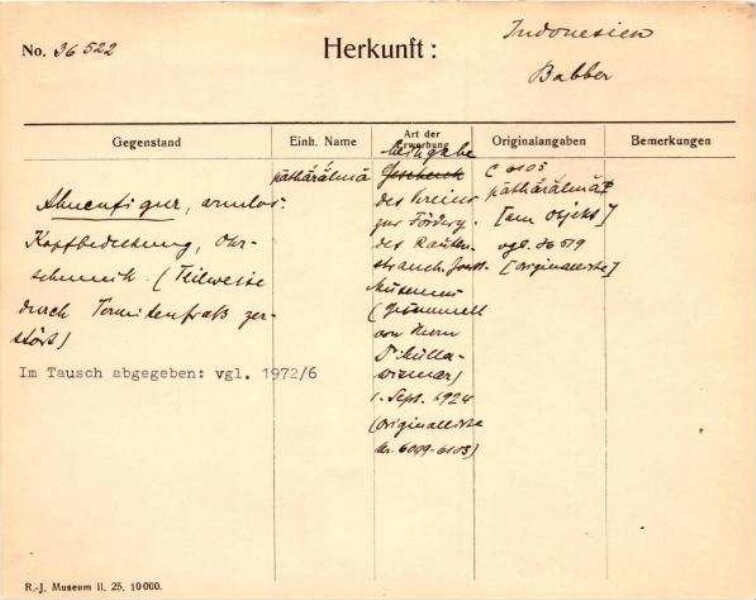 No. 36522
Herkunft:
Indonesien
Babber
Gegenstand
Einh. Name
Art der Erwerbung
Originalangaben
Bemerkungen
Ahnenfigur, armlos.
Kopfbedeckung, Ohr-
schmuck. (Teilweise
durch Termitenfraß zer-
stört)
Im Tausch abgegeben: vgl. 1972/6
päthärälmä
Leihgabe
Geschenk
des Vereins
zur Förderg.
des Rauten-
strauch-Joest-
Museums
(Gesammelt
von Herrn
Müller-
Wismar)
1. Sept. 1924
(Originalliste
Nr. 6099-6103)
C 6103
päthärälmä
[am Objekt]
vgl. 36519
[Originalliste]
R.-J. Museum II. 25. 10000.